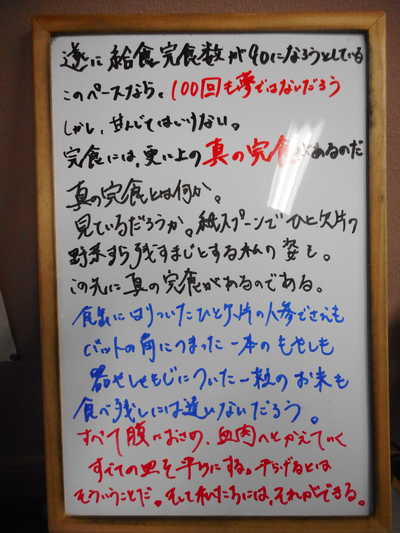 遂に給食完食数が90になろうとしている
このペースなら、100回も夢ではないだろう
しかし、甘んじてはいけない。
完食には、更に上の真の完食があるのだ
真の完食とは何か。
見ているだろうか。紙スプーンでひと欠片の
野菜すら残すまじとする私の姿を。
この先に真の完食があるのである。
食缶にはりついたひと欠片の人参でさえも
バットの角につまった一本のもやしも
器やしゃもじについた一粒のお米も
食べ残しには違いないだろう。
すべて腹におさめ、血肉へとかえていく
すべての皿を平らにする。平らげるとは
そういうことだ。そして私たちには、それができる。